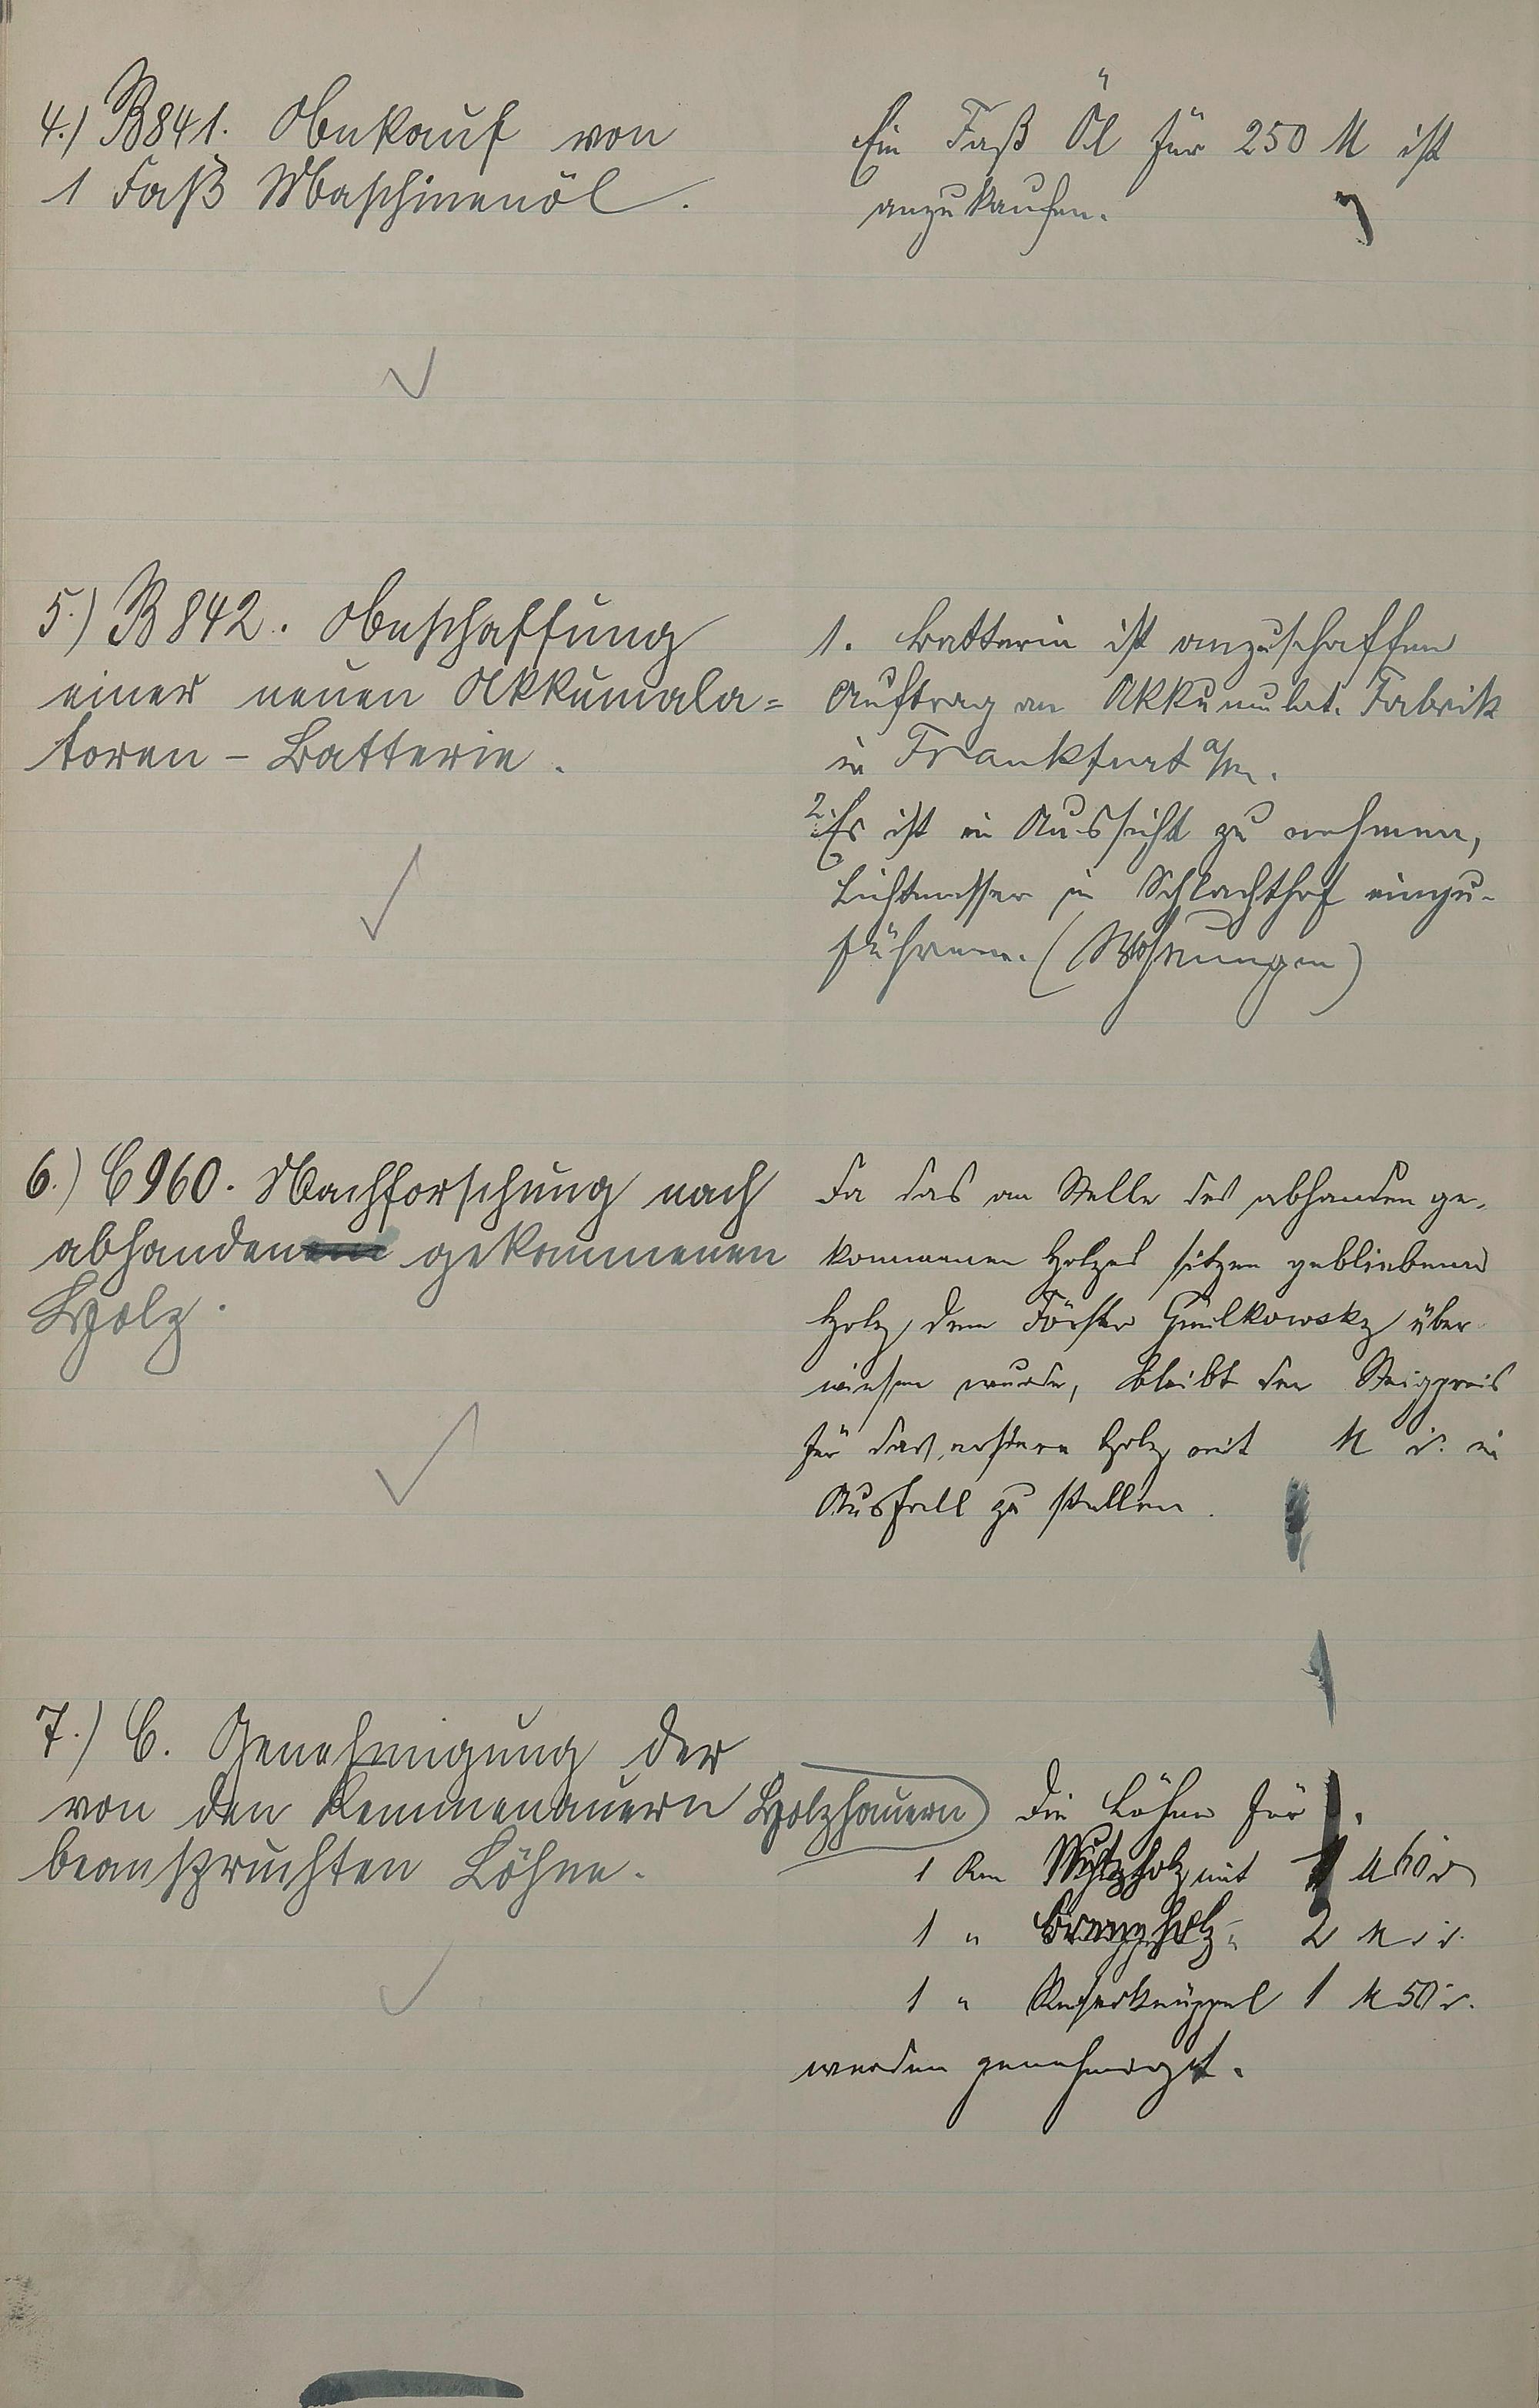 4.) B841. Ankauf von
1 Faß Maschinenöl.
Ein Faß Öl für 250 M ist
anzukaufen.
5.) B 842. Anschaffung
einer neuen Akkumala=
toren - Batterie.
1. Batterie ist anzuschaffen
Auftrag an Akkumulat. Fabrik
in Frankfurt a/m.
2. Es ist in Aussicht zu nehmen,
Lichtmesser im Schlachthof einzu-
führen. (Wohnungen)
6.) C 960. Nachforschung nach
abhanden gekommenen
Holz.
Da das an Stelle des abhanden ge-
kommenen Holzes sitzen gebliebene
Holz dem Förster über
wiesen wurde, bleibt der Steigpreis
für das erstere Holz mit M in
Ausfall zu stellen.
7.) C. Genehmigung der
von den Kemmenauern Holzhauern
beanspruchten Löhne.
Die Löhne für
1 Rm Nutzholz mit 1 M 60
1 " Brennholz " 2 M
1 " Reiserknüppel 1 M 50
werden genehmigt.